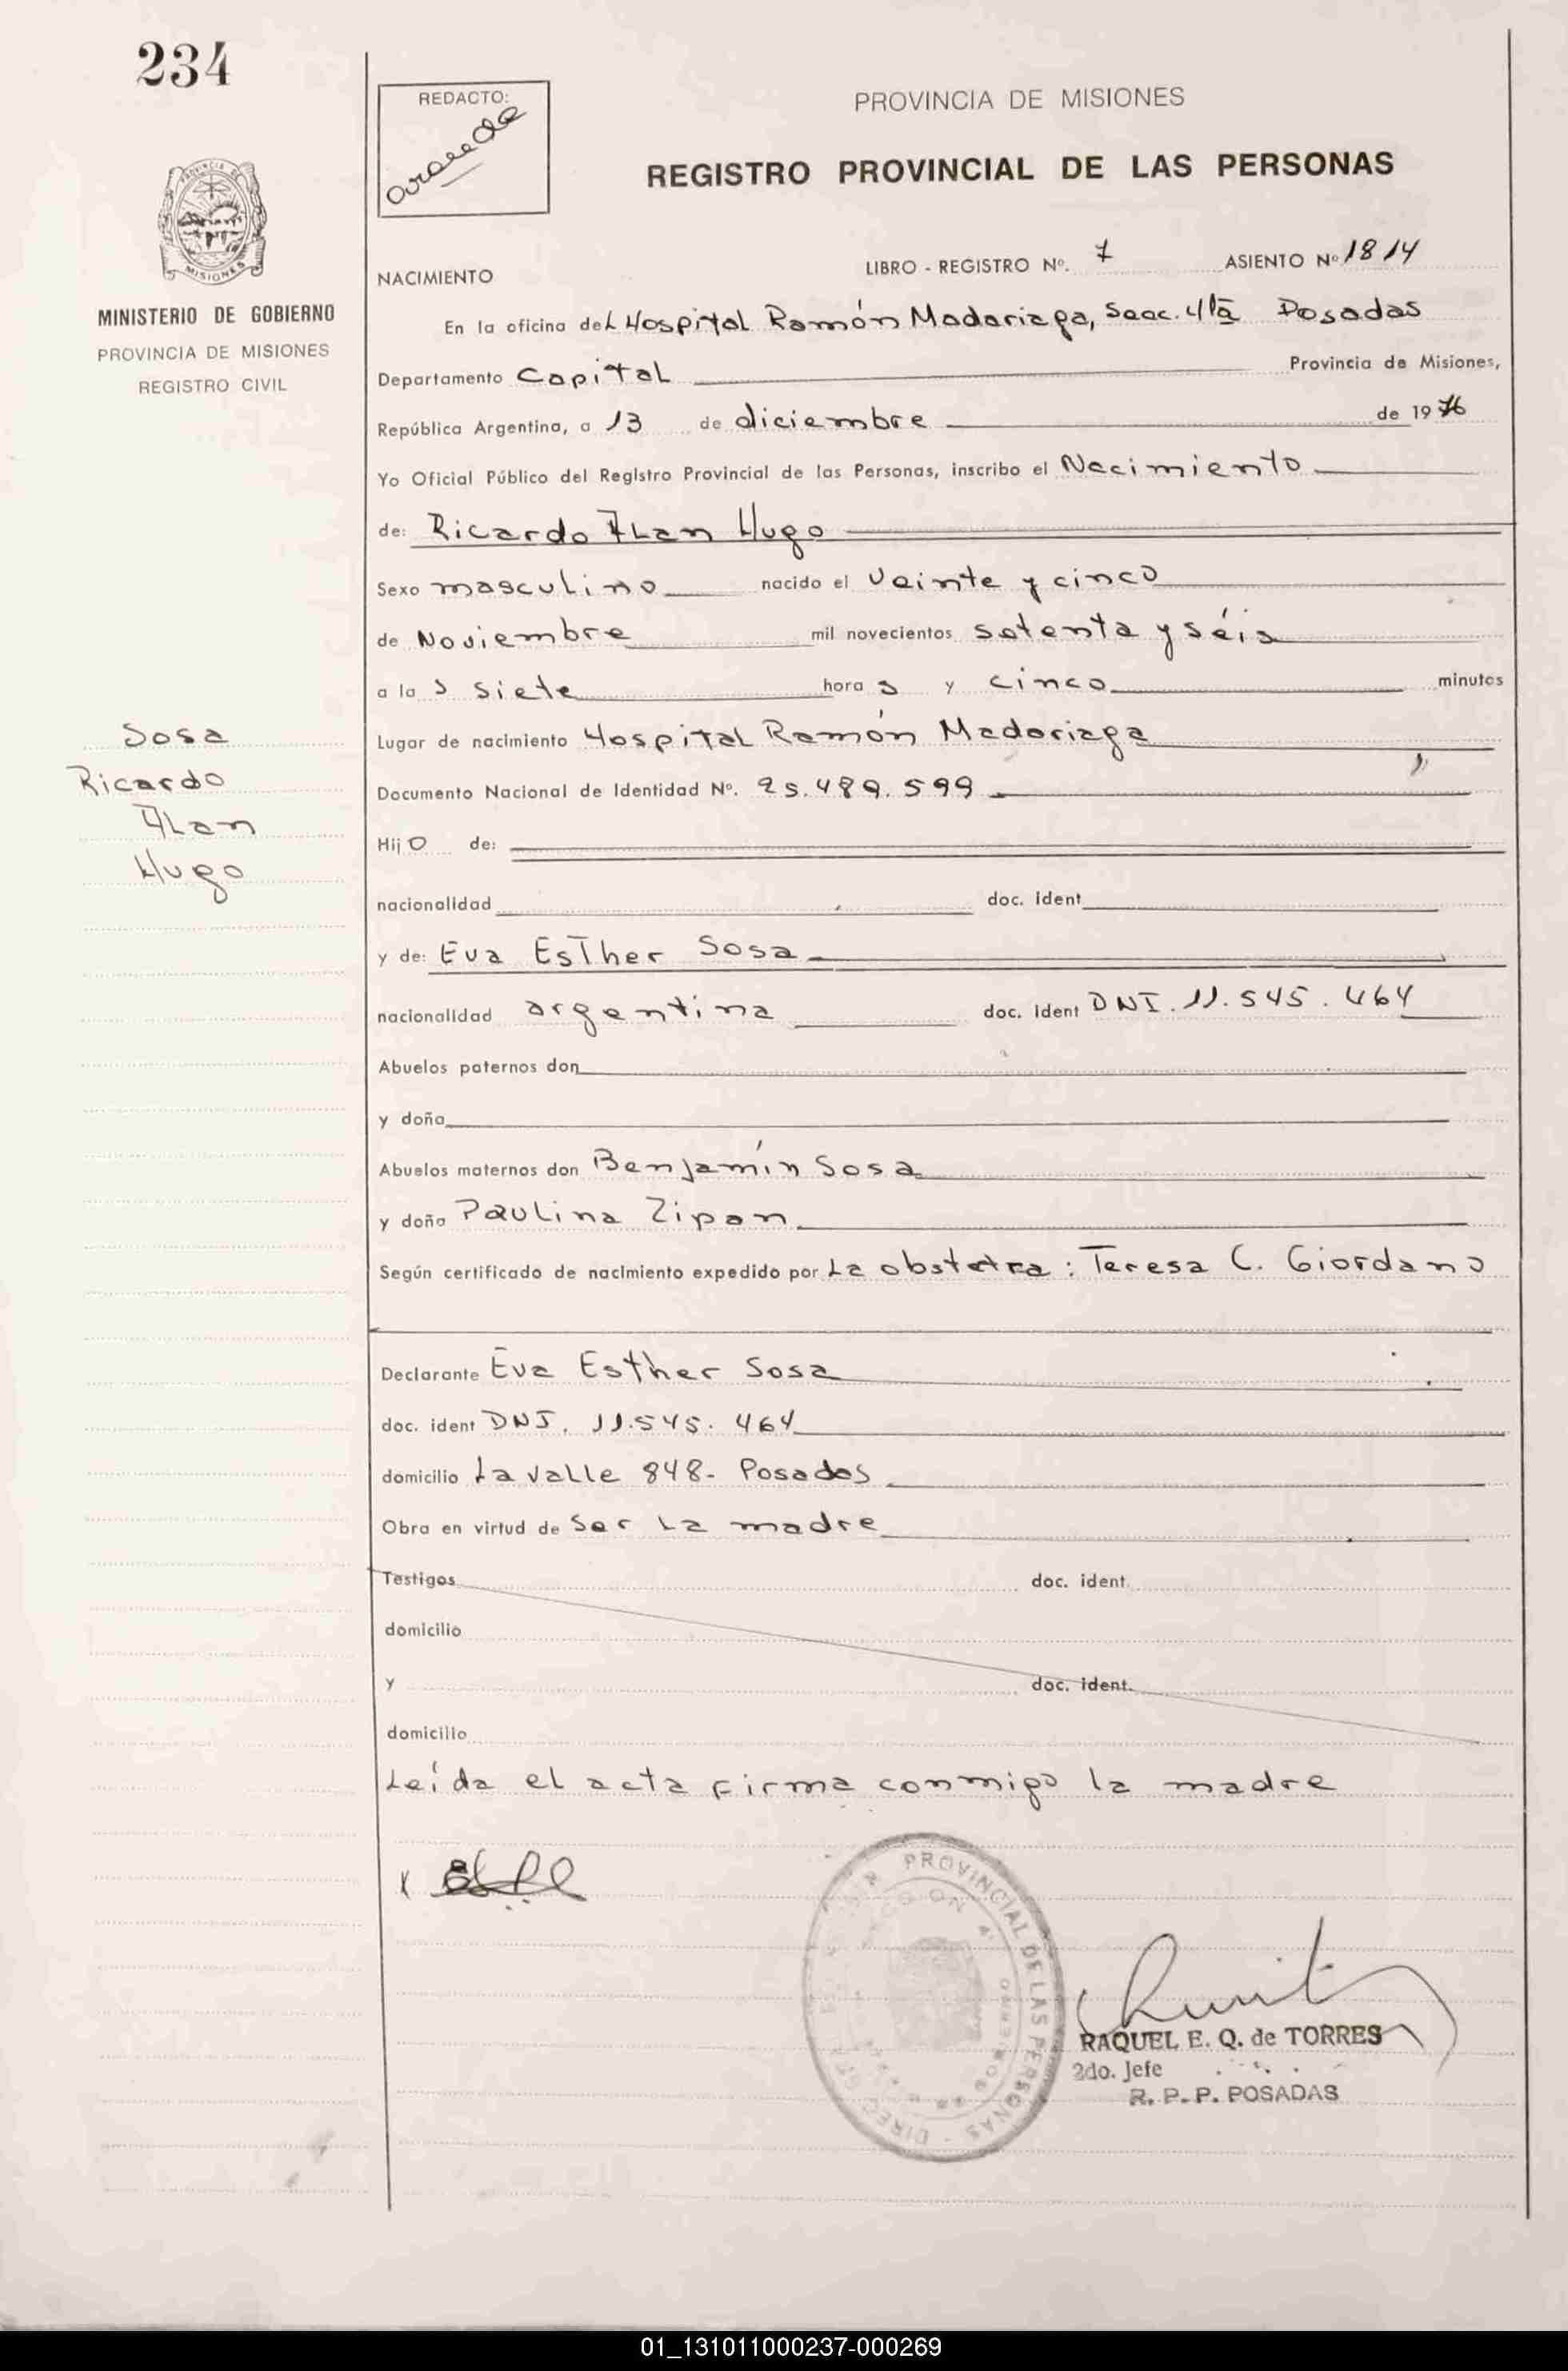 234
REDACTO:
PROVINCIA DE MISIONES
REGISTRO PROVINCIAL DE LAS PERSONAS
MISIONES
MINISTERIO DE GOBIERNO
PROVINCIA DE MISIONES
REGISTRO CIVIL
NACIMIENTO LIBRO - REGISTRO Nº. 7 ASIENTO Nº 1814
En la oficina del Hospital Ramón Madariaga, Secc. 4ta Posadas
Departamento Capital Provincia de Misiones,
República Argentina, a 13 de diciembre de 1976
Yo Oficial Público del Registro Provincial de las Personas, inscribo el Nacimiento
de: Ricardo Alan Hugo
Sexo masculino nacido el veinte y cinco
de Noviembre mil novecientos setenta y séis
a la s siete hora s y cinco minutos
Sosa
Ricardo
Alan
Hugo
Lugar de nacimiento Hospital Ramón Madariaga
Documento Nacional de Identidad Nº. 25.489.599
Hijo de:
nacionalidad doc. ident
y de: Eva Esther Sosa
nacionalidad argentina doc. ident DNI. 11.545.464
Abuelos paternos don
y doña
Abuelos maternos don Benjamín Sosa
y doña Paulina Zipan
Según certificado de nacimiento expedido por La obstetra: Teresa C. Giordano
Declarante Eva Esther Sosa
doc. ident DNI. 11.545.464
domicilio Lavalle 848- Posadas
Obra en virtud de Ser La madre
Testigos doc. ident.
domicilio
y doc. ident.
domicilio
Leída el acta firma conmigo la madre
PROVINCIAL DE LAS PERSONAS
RAQUEL E. Q. de TORRES
2do. Jefe
R. P. P. POSADAS
01_131011000237-000269